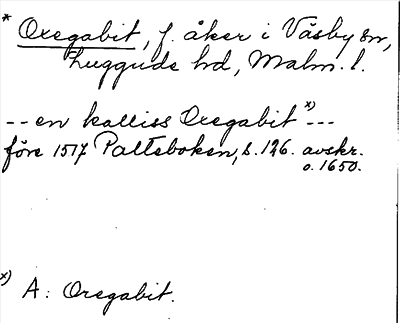 * Oxegabit, f. åker i Väsby sn,
Luggude hd, Malm. l.
-- en kalliss Oxegabit x) ---
före 1517 Palteboken, s. 126. avskr.
o. 1650.
x) A: Oregabit.